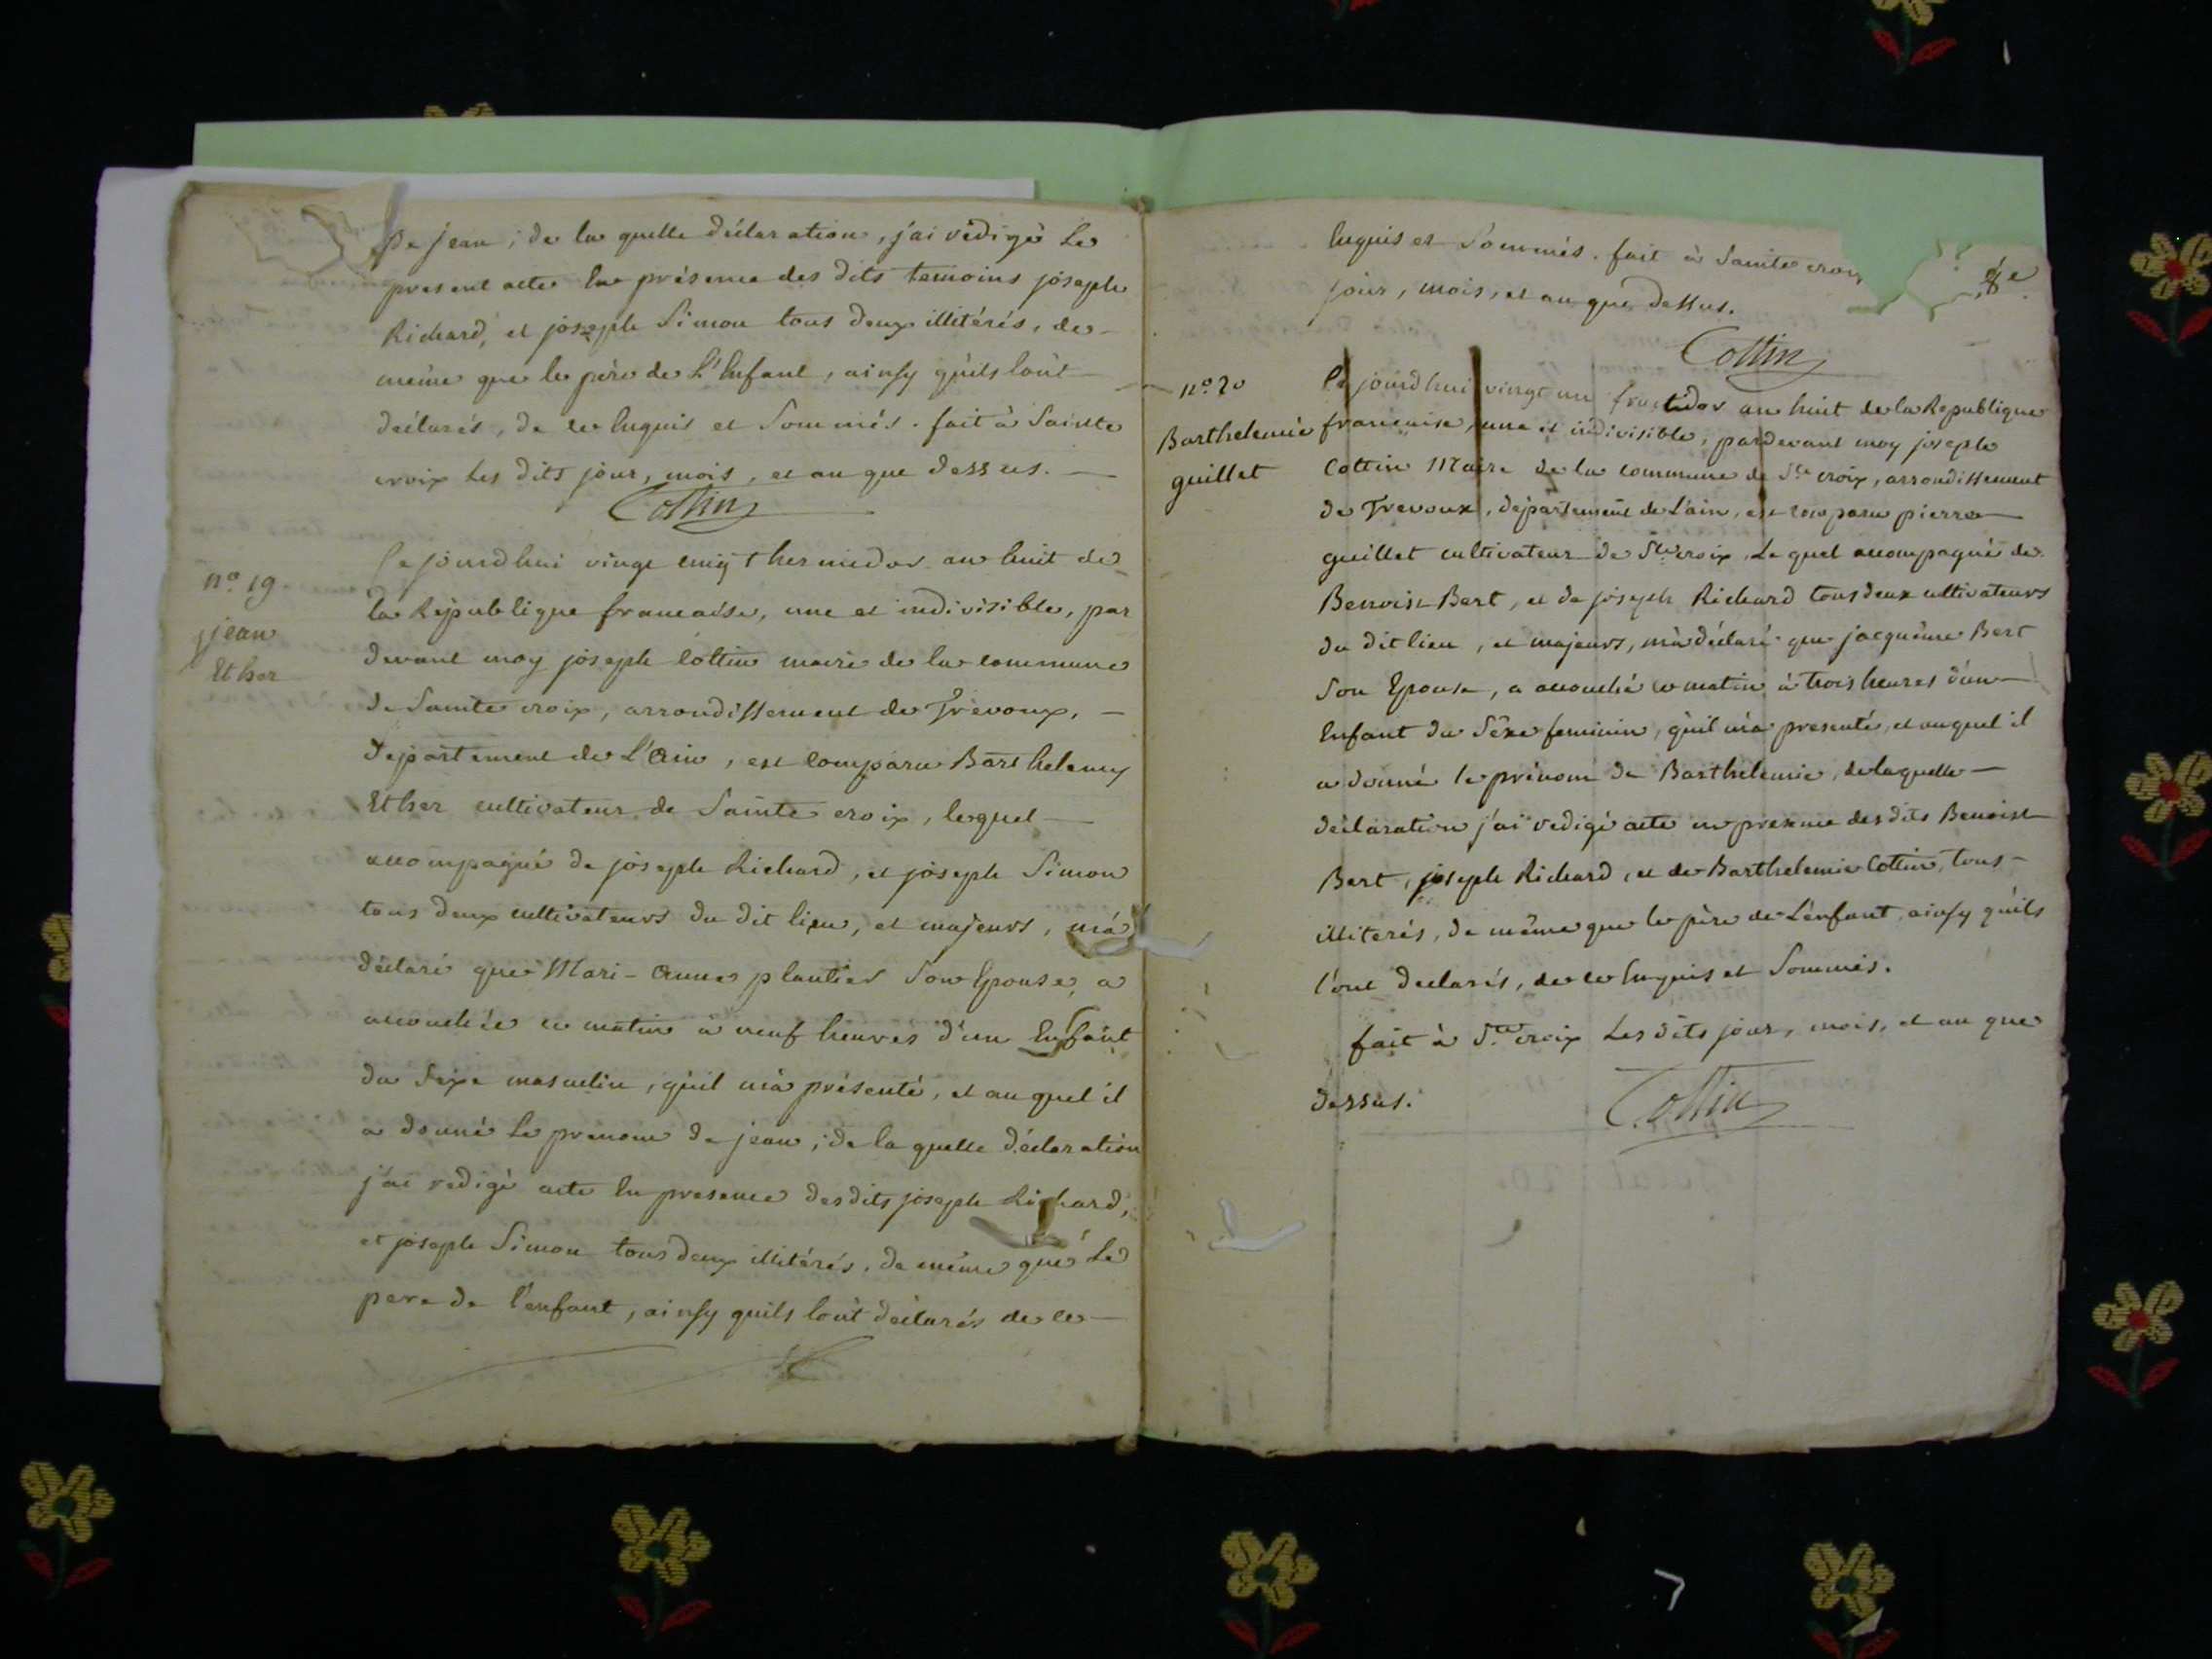 De jean ; de la quelle déclaration, j'ai rédigé le
present acte En présence des dits temoins joseph
Richard, et joseph Simon tous deux illitérés, de
même que le père de L'Enfant, ainsy qu'ils l'ont
déclarés, de ce Enquis et Sommés. fait à Sainte
croix Les dits jour, mois, et an que dessus.
Cottin
n.o 19
jean
Ether
Ce jourdhui vingt cinq thermidor an huit de
la République francaise, une et indivisible, par
devant moy joseph Cottin maire de la commune
de Sainte croix, arrondissement de Trévoux,
département de L'Ain, est comparu Barthelemy
Ether cultivateur de Sainte croix, lequel
accompagné de joseph Richard, et joseph Simon
tous deux cultivateurs du dit lieu, et majeurs, m'a
déclaré que Mari-Anne plantier Son Epouse, a
accouchée ce matin à neuf heures d'un Enfant
du Sexe masculin, qu'il m'a présenté, et au quel il
a donné Le prenom de jean ; de la quelle déclaration
j'ai redigé acte En presence des dits joseph Richard,
et joseph Simon tous deux illitérés, de même que Le
pere de l'enfant, ainsy quils l'ont déclarés de ce
Enquis et Sommés. fait à Sainte croix
jour, mois, et an que dessus.
Cottin
n.o 20
Barthelemie
guillet
Ce jourdhui vingt un fructidor an huit de la Republique
francaise, une et indivisible, pardevant moy joseph
Cottin Maire de la commune de Ste croix, arrondissement
de Trevoux, département de L'ain, est comparu pierre
guillet cultivateur de Ste croix, Le quel accompagné de
Benoist Bert, et de joseph Richard tous deux cultivateurs
du dit lieu, et majeurs, m'a déclaré que jacquême Bert
Son Epouse, a accouché ce matin à trois heures d'un
Enfant du Séxe feminin, qu'il m'a presenté, et auquel il
a donné le prénom de Barthélemie, de laquelle
déclaration j'ai redigé acte en presence des dits Benoist
Bert, joseph Richard, et de Barthelemie Cottin, tous
illiterés, de même que le père de L'enfant, ainsy qu'ils
l'ont declarés, de ce Enquis et Sommés.
fait à Ste croix Les dits jour, mois, et an que
dessus.
Cottin